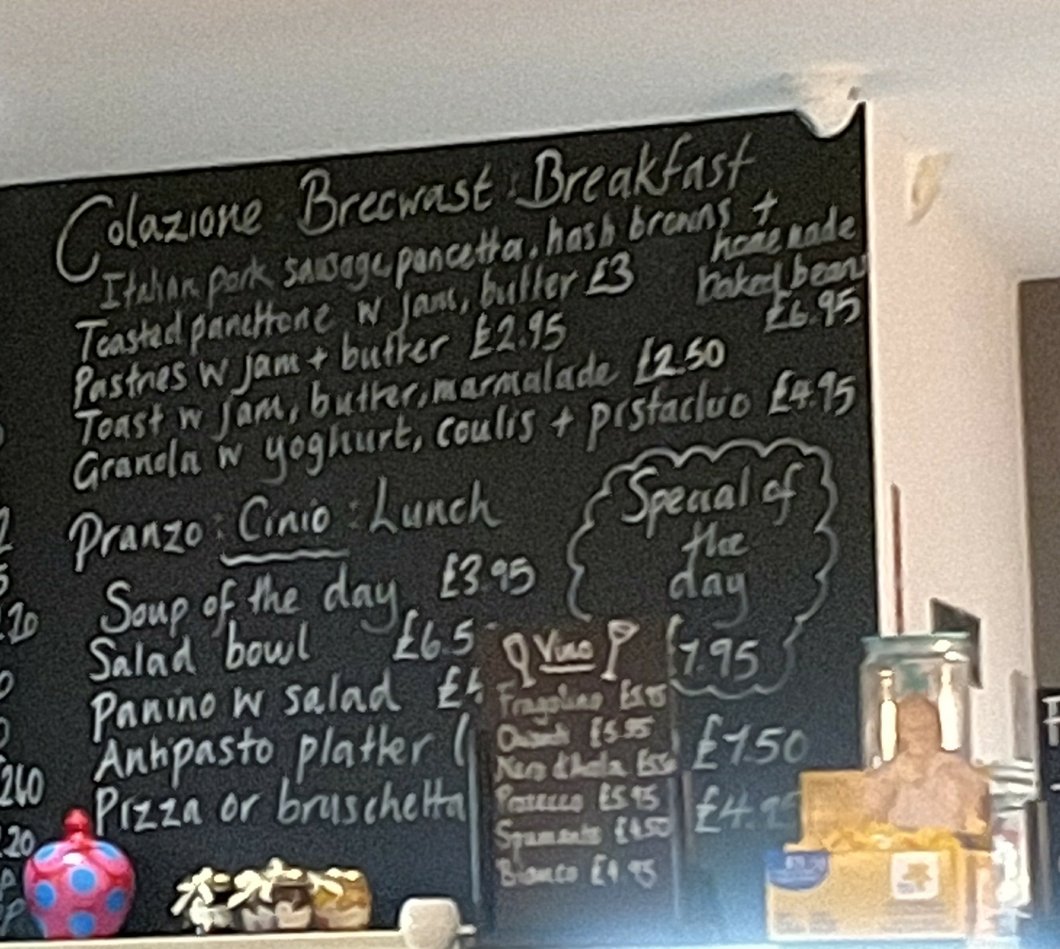 Colazione : Brecwast : Breakfast
Italian pork sausage, pancetta, hash browns +
homemade
baked bean
£6.95
Toasted panettone w jam, butter £3
Pastries w jam + butter £2.95
Toast w jam, butter, marmalade £2.50
Granola w yoghurt, coulis + pistachio £4.95
Pranzo : Cinio : Lunch
Special of
the
day
£7.95
Soup of the day £3.95
Salad bowl £6.5
Panino w salad
Antipasto platter ( £7.50
Pizza or bruschetta £4.95
Vino
Fragolino
£5.95
Nero d'Avola
Prosecco £5.95
Spumante £4.50
Bianco £4.95
.20
260
.20